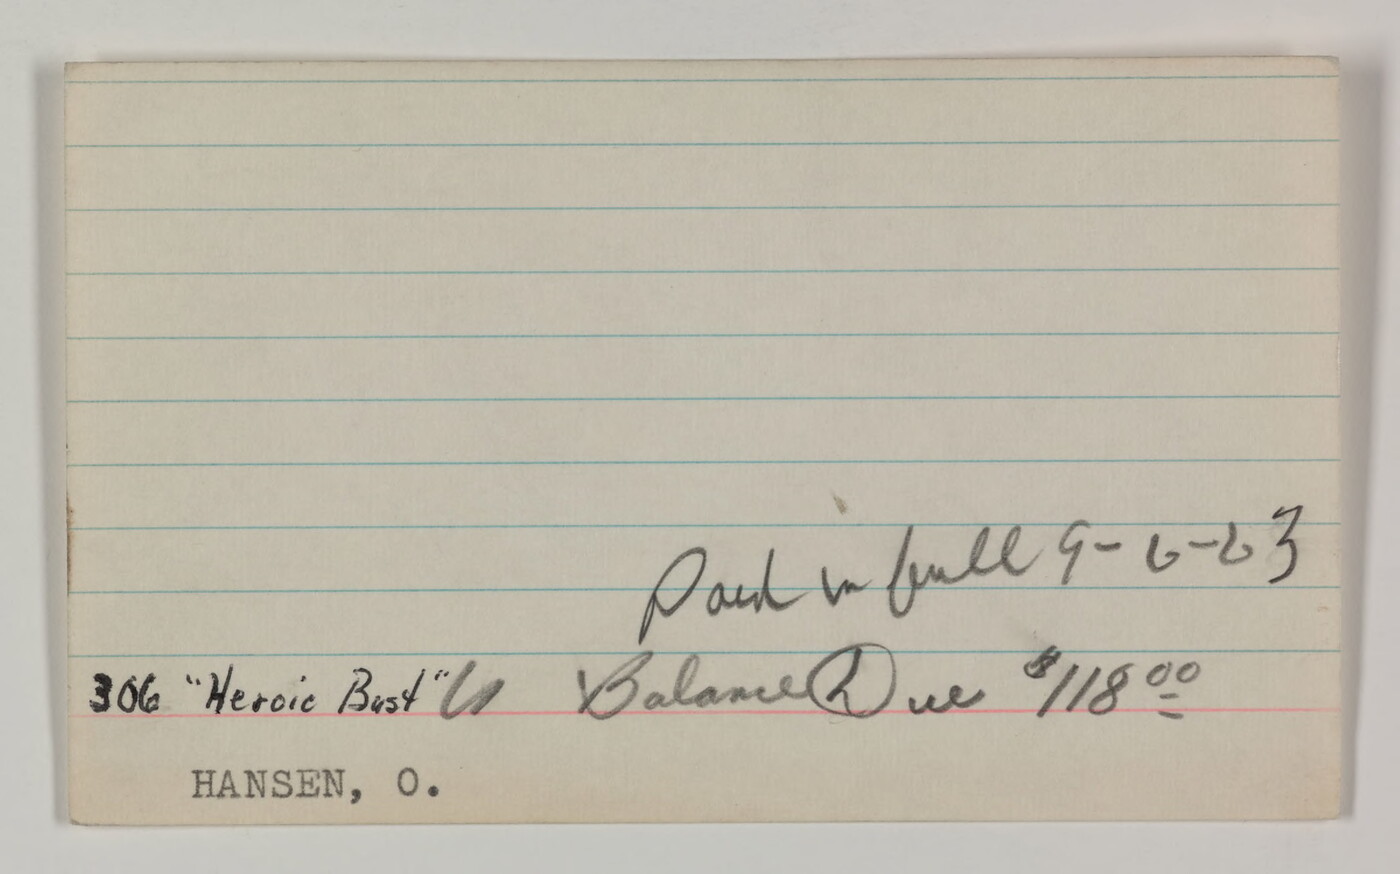 Paid in full 9-6-63
306 "Heroic Bust" Balance Due $118 00
HANSEN, O.